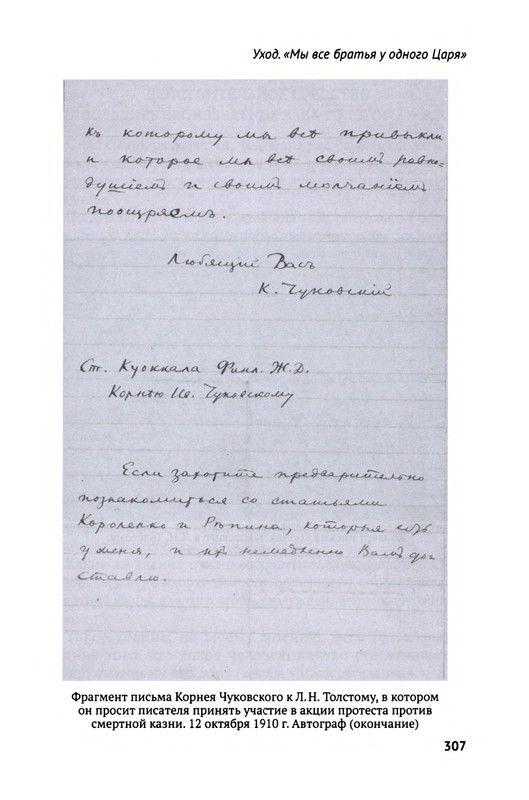 Уход. «Мы все братья у одного Царя»
къ которому мы всѣ привыкли
и которое мы всѣ своимъ равно-
душіемъ и своимъ молчаніемъ
поощряемъ.
Любящій Васъ
К. Чуковскій
Ст. Куоккала Финл. Ж.Д.
Корнѣю Ив. Чуковскому
Если захотите предварительно
познакомиться со статьями
Короленко и Рѣпина, которыя есть
у меня, я ихъ немедленно Вамъ до-
ставлю.
Фрагмент письма Корнея Чуковского к Л.Н. Толстому, в котором
он просит писателя принять участие в акции протеста против
смертной казни. 12 октября 1910 г. Автограф (окончание)
307